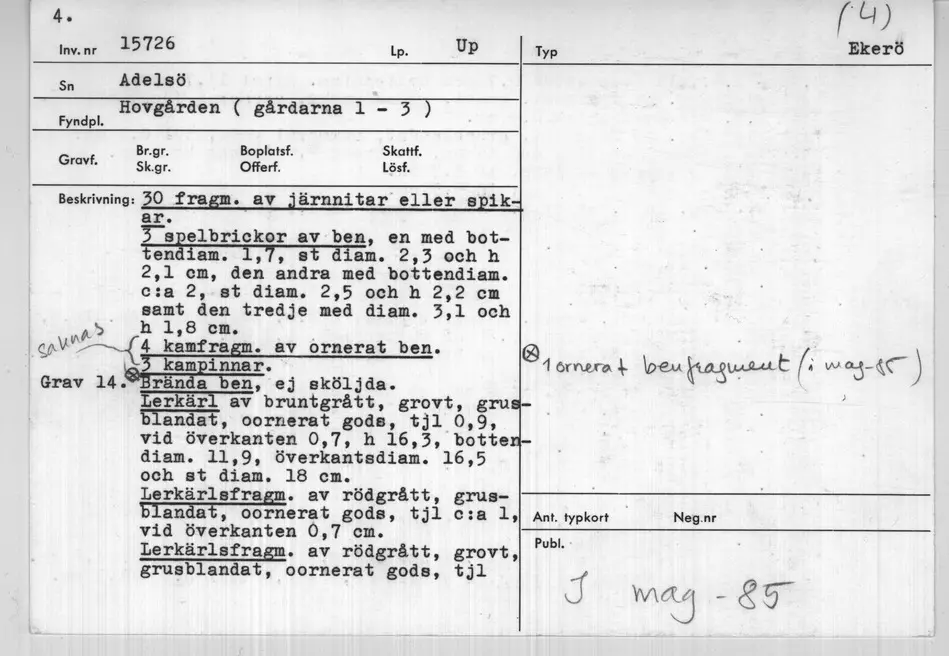 4.
(4)
Inv. nr 15726 Lp. Up Typ Ekerö
Sn Adelsö
Fyndpl. Hovgården ( gårdarna 1 - 3 )
Gravf. Br.gr. Boplatsf. Skattf.
Sk.gr. Offerf. Lösf.
Beskrivning: 30 fragm. av järnnitar eller spik-
ar.
3 spelbrickor av ben, en med bot-
tendiam. 1,7, st diam. 2,3 och h
2,1 cm, den andra med bottendiam.
c:a 2, st diam. 2,5 och h 2,2 cm
samt den tredje med diam. 3,1 och
h 1,8 cm.
saknas
4 kamfragm. av ornerat ben.
3 kampinnar.
Grav 14. ⊗ Brända ben, ej sköljda.
Lerkärl av bruntgrått, grovt, grus-
blandat, oornerat gods, tjl 0,9,
vid överkanten 0,7, h 16,3, botten-
diam. 11,9, överkantsdiam. 16,5
och st diam. 18 cm.
Lerkärlsfragm. av rödgrått, grus-
blandat, oornerat gods, tjl c:a 1,
vid överkanten 0,7 cm.
Lerkärlsfragm. av rödgrått, grovt,
grusblandat, oornerat gods, tjl
⊗ 1 ornerat benfragment (i mag-85)
Ant. typkort Neg.nr
Publ.
I mag - 85